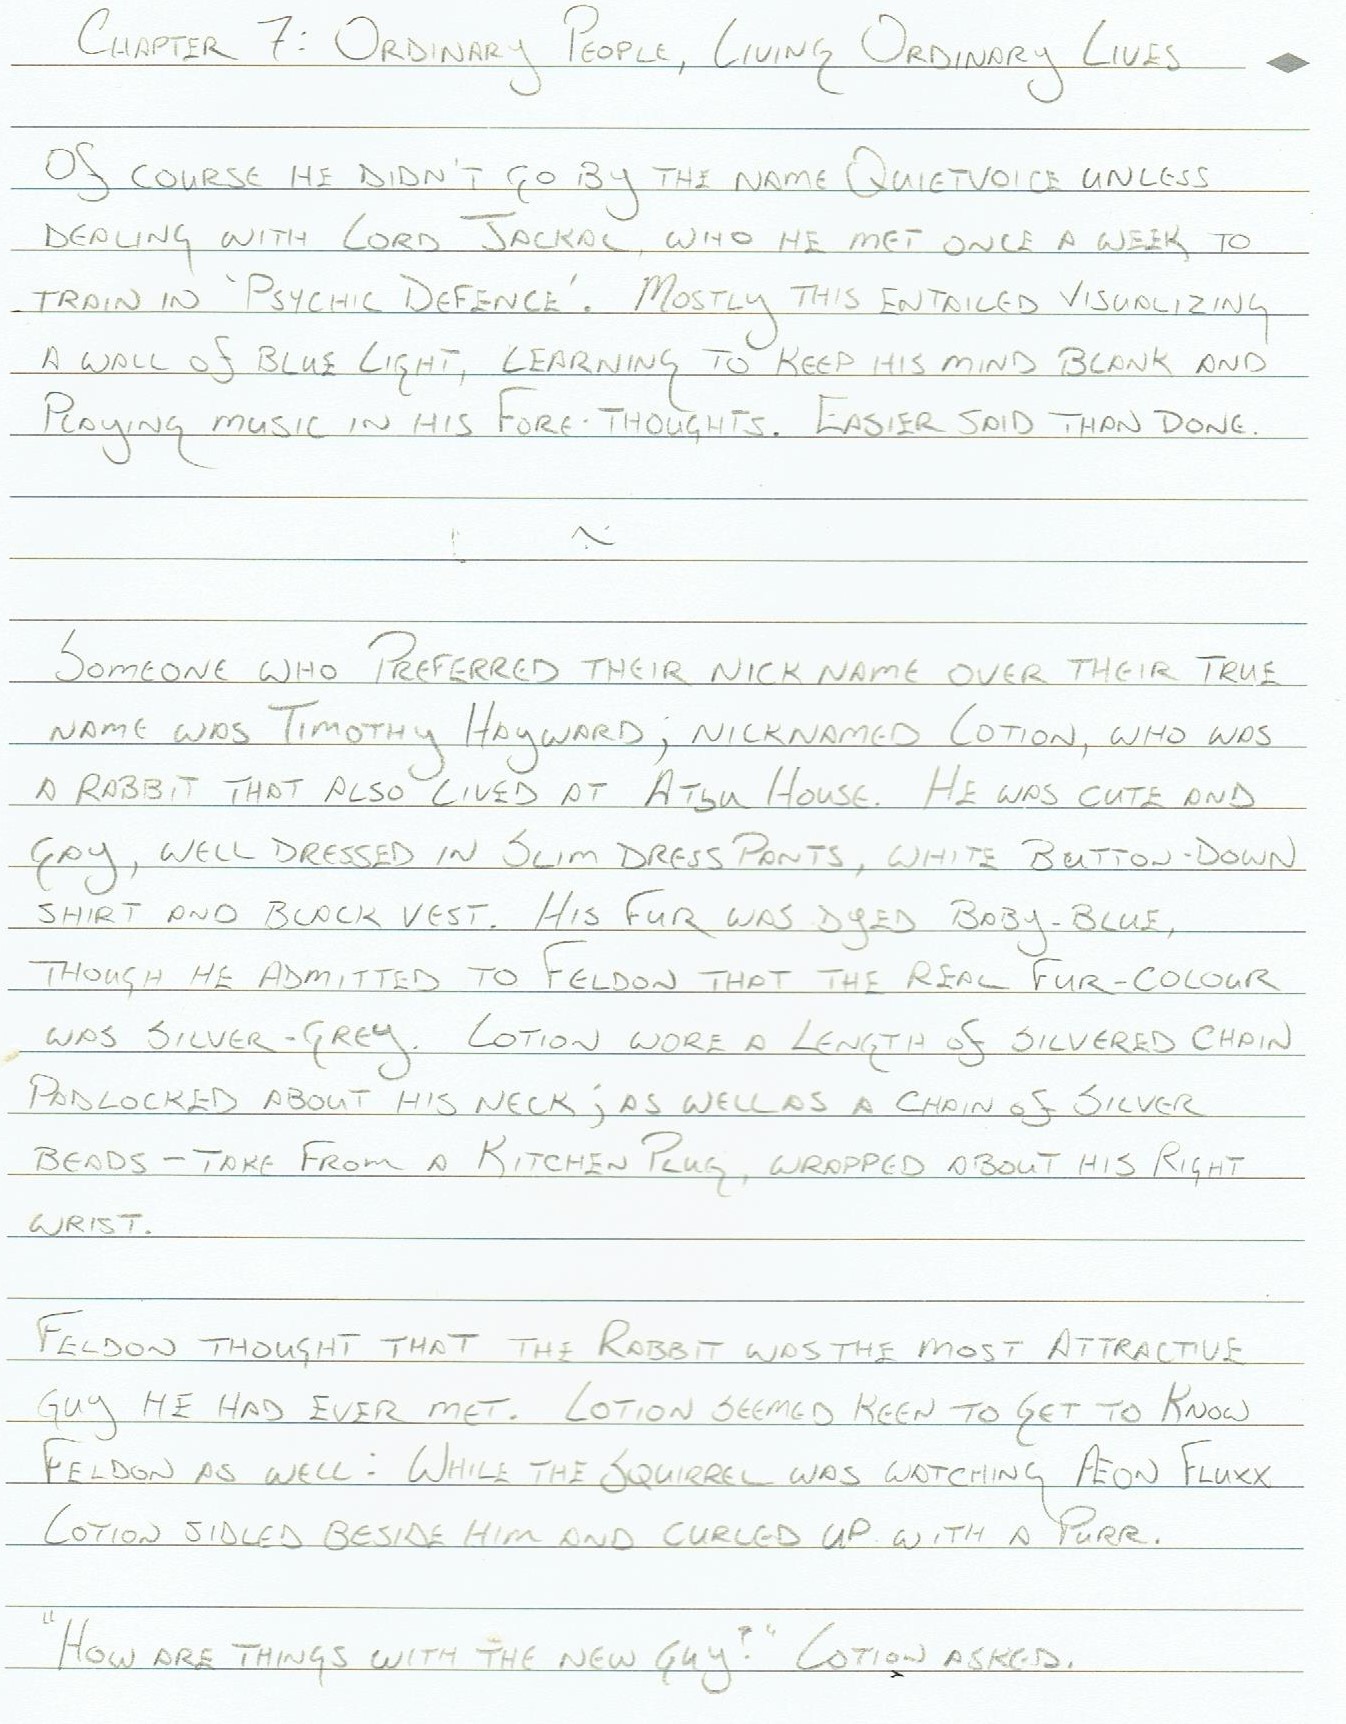 Chapter 7: Ordinary People, Living Ordinary Lives
Of course he didn't go by the name Quietvoice unless
dealing with Lord Jackal, who he met once a week to
train in 'Psychic Defence'. Mostly this entailed visualizing
a wall of blue light, learning to keep his mind blank and
playing music in his fore-thoughts. Easier said than done.
~
Someone who preferred their nick name over their true
name was Timothy Hayward; nicknamed Lotion, who was
a rabbit that also lived at Atsu House. He was cute and
gay, well dressed in slim dress pants, white button-down
shirt and black vest. His fur was dyed baby-blue,
though he admitted to Feldon that the real fur-colour
was silver-grey. Lotion wore a length of silvered chain
padlocked about his neck; as well as a chain of silver
beads - take from a kitchen plug, wrapped about his right
wrist.
Feldon thought that the rabbit was the most attractive
guy he had ever met. Lotion seemed keen to get to know
Feldon as well: While the squirrel was watching Æon Fluxx
Lotion sidled beside him and curled up with a purr.
"How are things with the new guy?" Lotion asked.